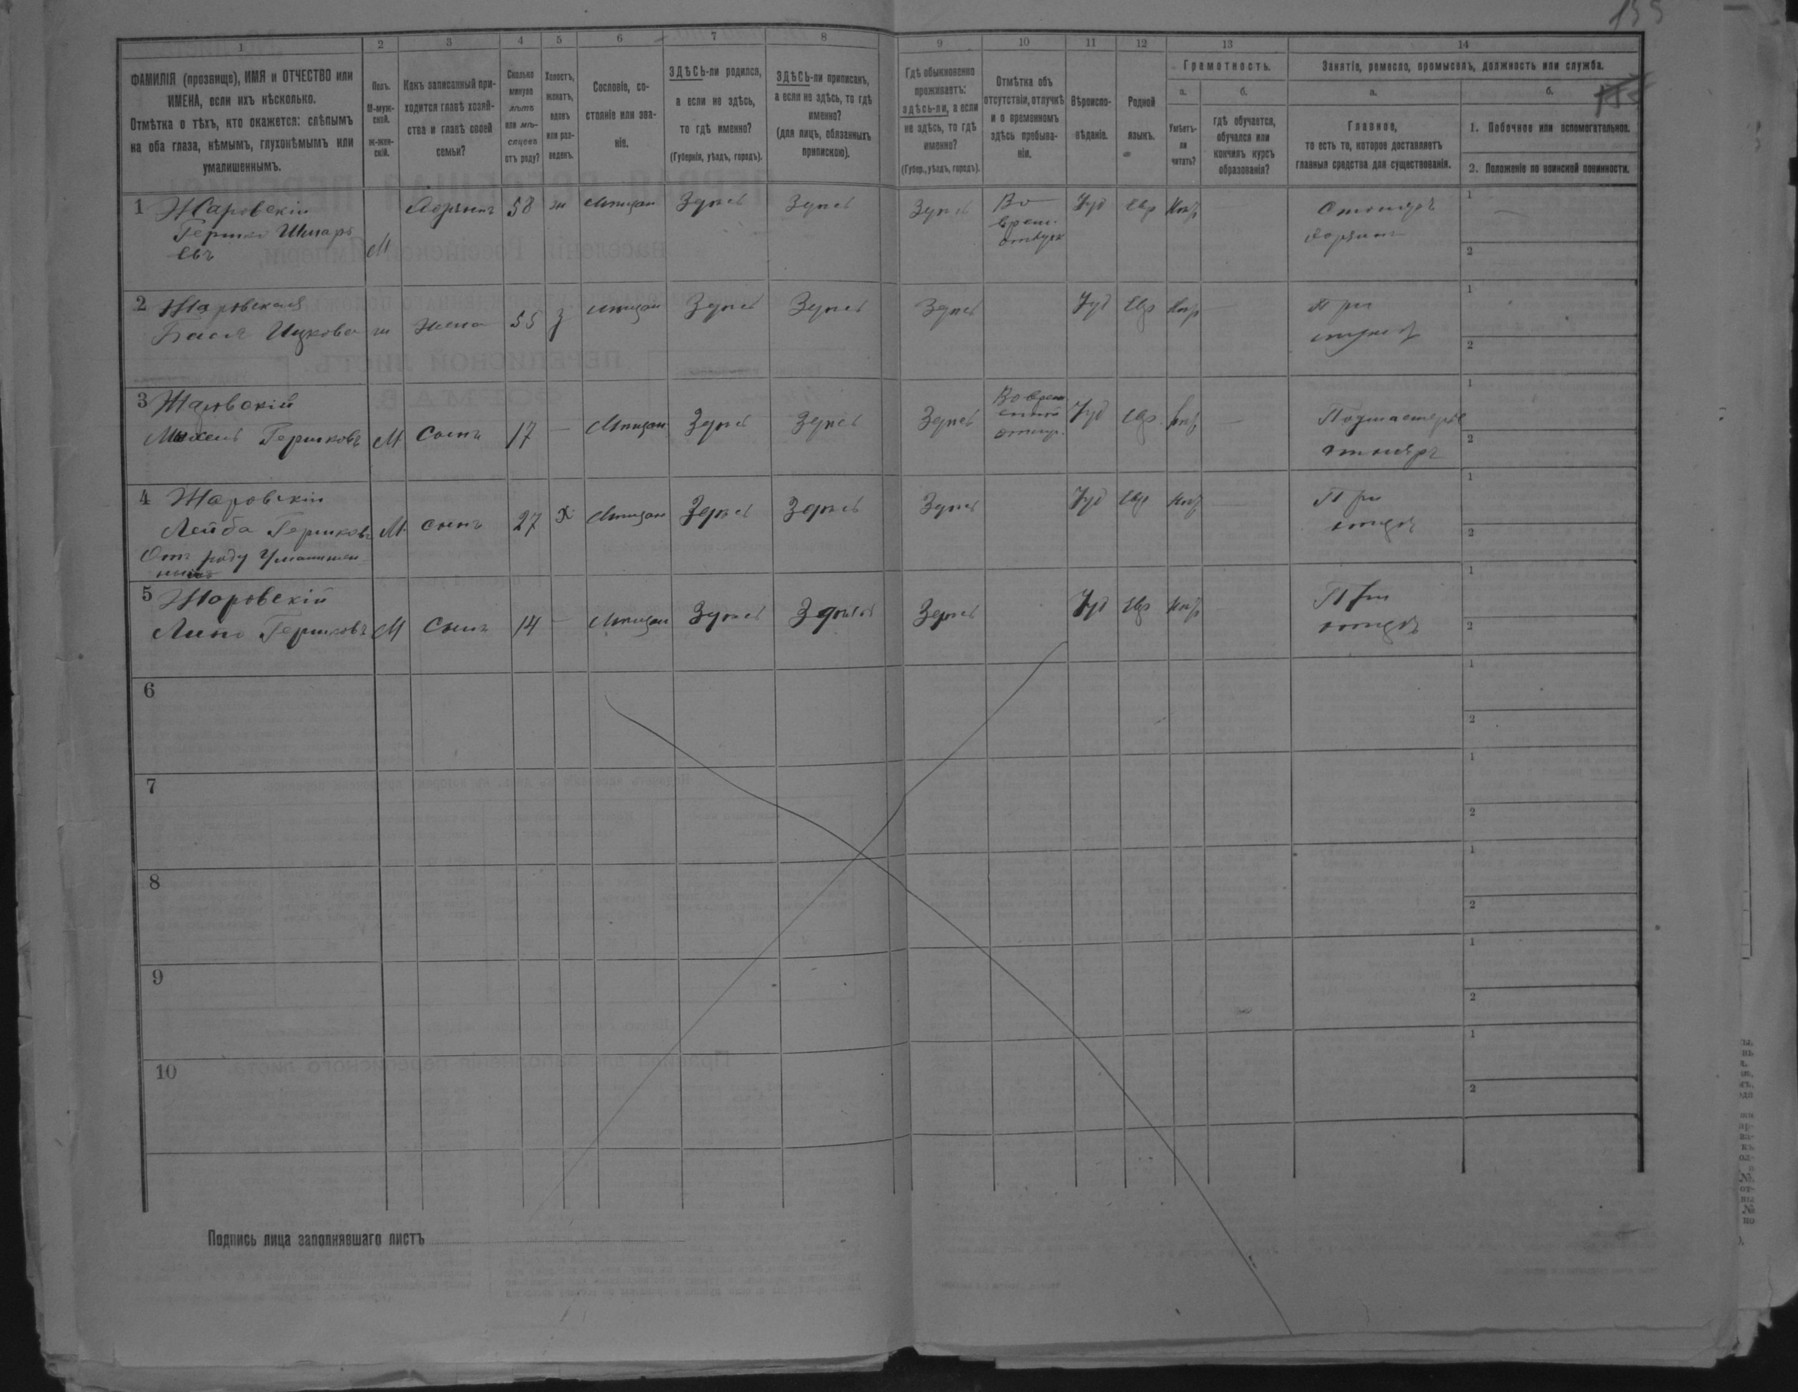 155
1 2 3 4 5 6 7 8 9 10 11 12 13 14
ФАМИЛІЯ (прозвище), ИМЯ и ОТЧЕСТВО или
ИМЕНА, если ихъ нѣсколько.
Отмѣтка о тѣхъ, кто окажется: слѣпымъ
на оба глаза, нѣмымъ, глухонѣмымъ или
умалишеннымъ.
Полъ.
М-муж-
ской.
ж-жен-
скій.
Какъ записанный при-
ходится главѣ хозяй-
ства и главѣ своей
семьи?
Сколько
минуло
лѣтъ
или мѣ-
сяцевъ
отъ роду?
Холостъ,
женатъ,
вдовъ
или раз-
веденъ.
Сословіе, со-
стояніе или зва-
ніе.
ЗДѢСЬ-ли родился,
а если не здѣсь,
то гдѣ именно?
(Губернія, уѣздъ, городъ).
ЗДѢСЬ-ли приписанъ,
а если не здѣсь, то гдѣ
именно?
(для лицъ, обязанныхъ
припискою).
Гдѣ обыкновенно
проживаетъ:
здѣсь-ли, а если
не здѣсь, то гдѣ
именно?
(Губер., уѣздъ, городъ).
Отмѣтка объ
отсутствіи, отлучкѣ
и о временномъ
здѣсь пребыва-
ніи.
Вѣроиспо-
вѣданіе.
Родной
языкъ.
Грамотность.
а.
Умѣетъ-
ли
читать?
б.
гдѣ обучается,
обучался или
кончилъ курсъ
образованія?
Занятіе, ремесло, промыселъ, должность или служба.
а.
Главное,
то есть то, которое доставляетъ
главныя средства для существованія.
б.
1. Побочное или вспомогательное.
2. Положеніе по воинской повинности.
1 Жаровскій
Гершко
М 58 ж Мѣщан Здѣсь Здѣсь Здѣсь Во врем. отлуч Іуд Евр Столяръ
1
2
2 Жаровская
Бася Ицкова ж жена 55 З Мѣщан Здѣсь Здѣсь Здѣсь Іуд Евр При мужѣ
1
2
3 Жаровскій
Гершковъ М сынъ 17 — Мѣщан Здѣсь Здѣсь Здѣсь Іуд Евр — Подмастерье столяръ
1
2
4 Жаровскій
Лейба Гершковъ М сынъ 27 Х Мѣщан Здѣсь Здѣсь Здѣсь Іуд Евр — При отцѣ
Отъ роду Умалишен
1
2
5 Жаровскій
Гершковъ М сынъ 14 — Мѣщан Здѣсь Здѣсь Здѣсь Іуд Евр При отцѣ
1
2
6
1
2
7
1
2
8
1
2
9
1
2
10
1
2
Подпись лица заполнявшаго листъ